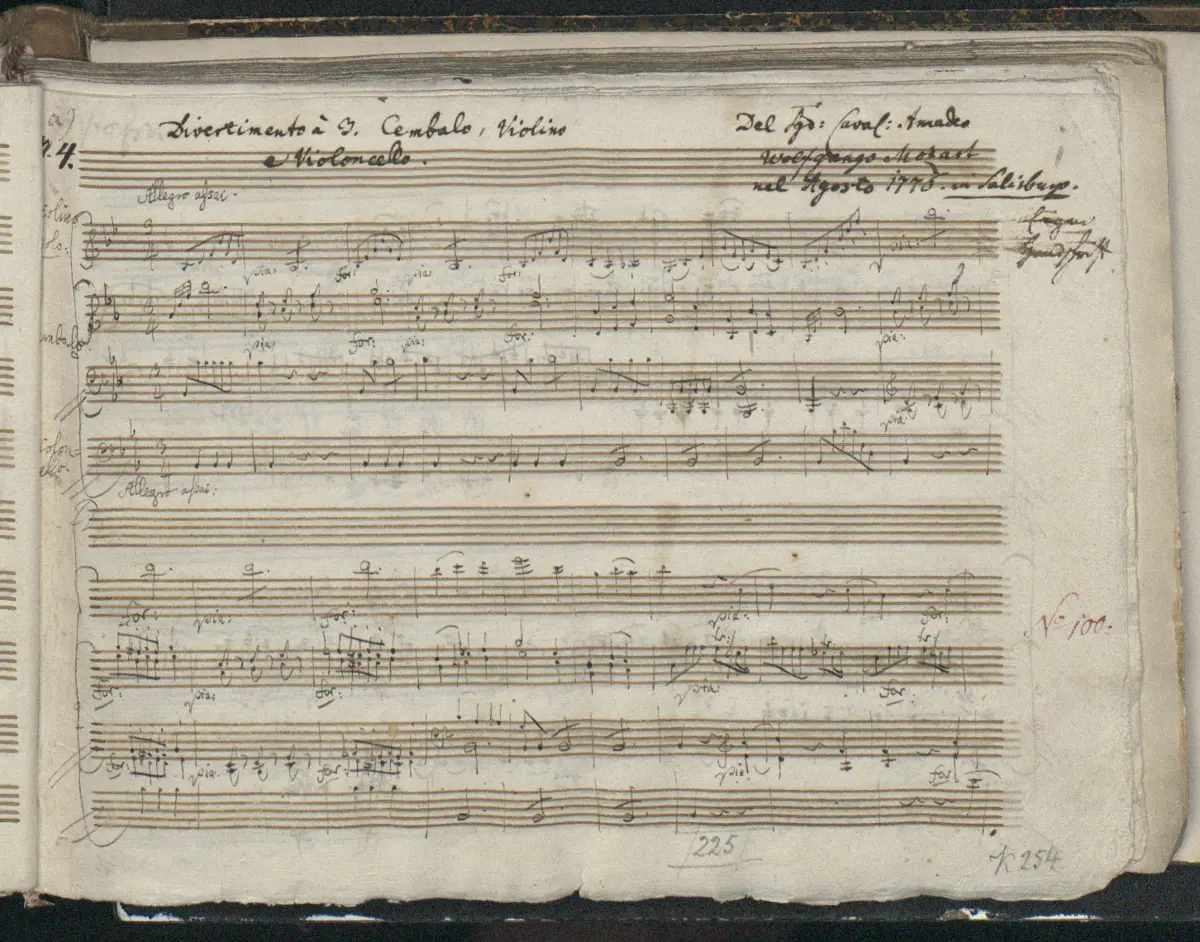 a)
N. 4.
Divertimento à 3. Cembalo, Violino
e Violoncello.
Del Sgr: Caval: Amadeo
Wolfgango Mozart
nel Agosto 1776. in Salisburgo.
Handschrift
Allegro assai.
violino
solo:
pia: for: pia: for: pia:
Cembalo
pia: for: pia: for: pia:
pia:
violon-
cello.
Allegro assai:
for: pia: for: pia: for:
No 100.
tr: tr
for: pia: for: pia for:
for: pia: for: pia: for:
225
K 254